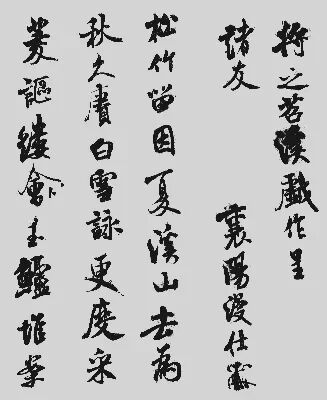 將之苕溪戲作呈
諸友　襄陽漫仕黻
松竹留因夏溪山去為
秋久賡白雪詠更度采
菱謳縷會玉鱸堆案